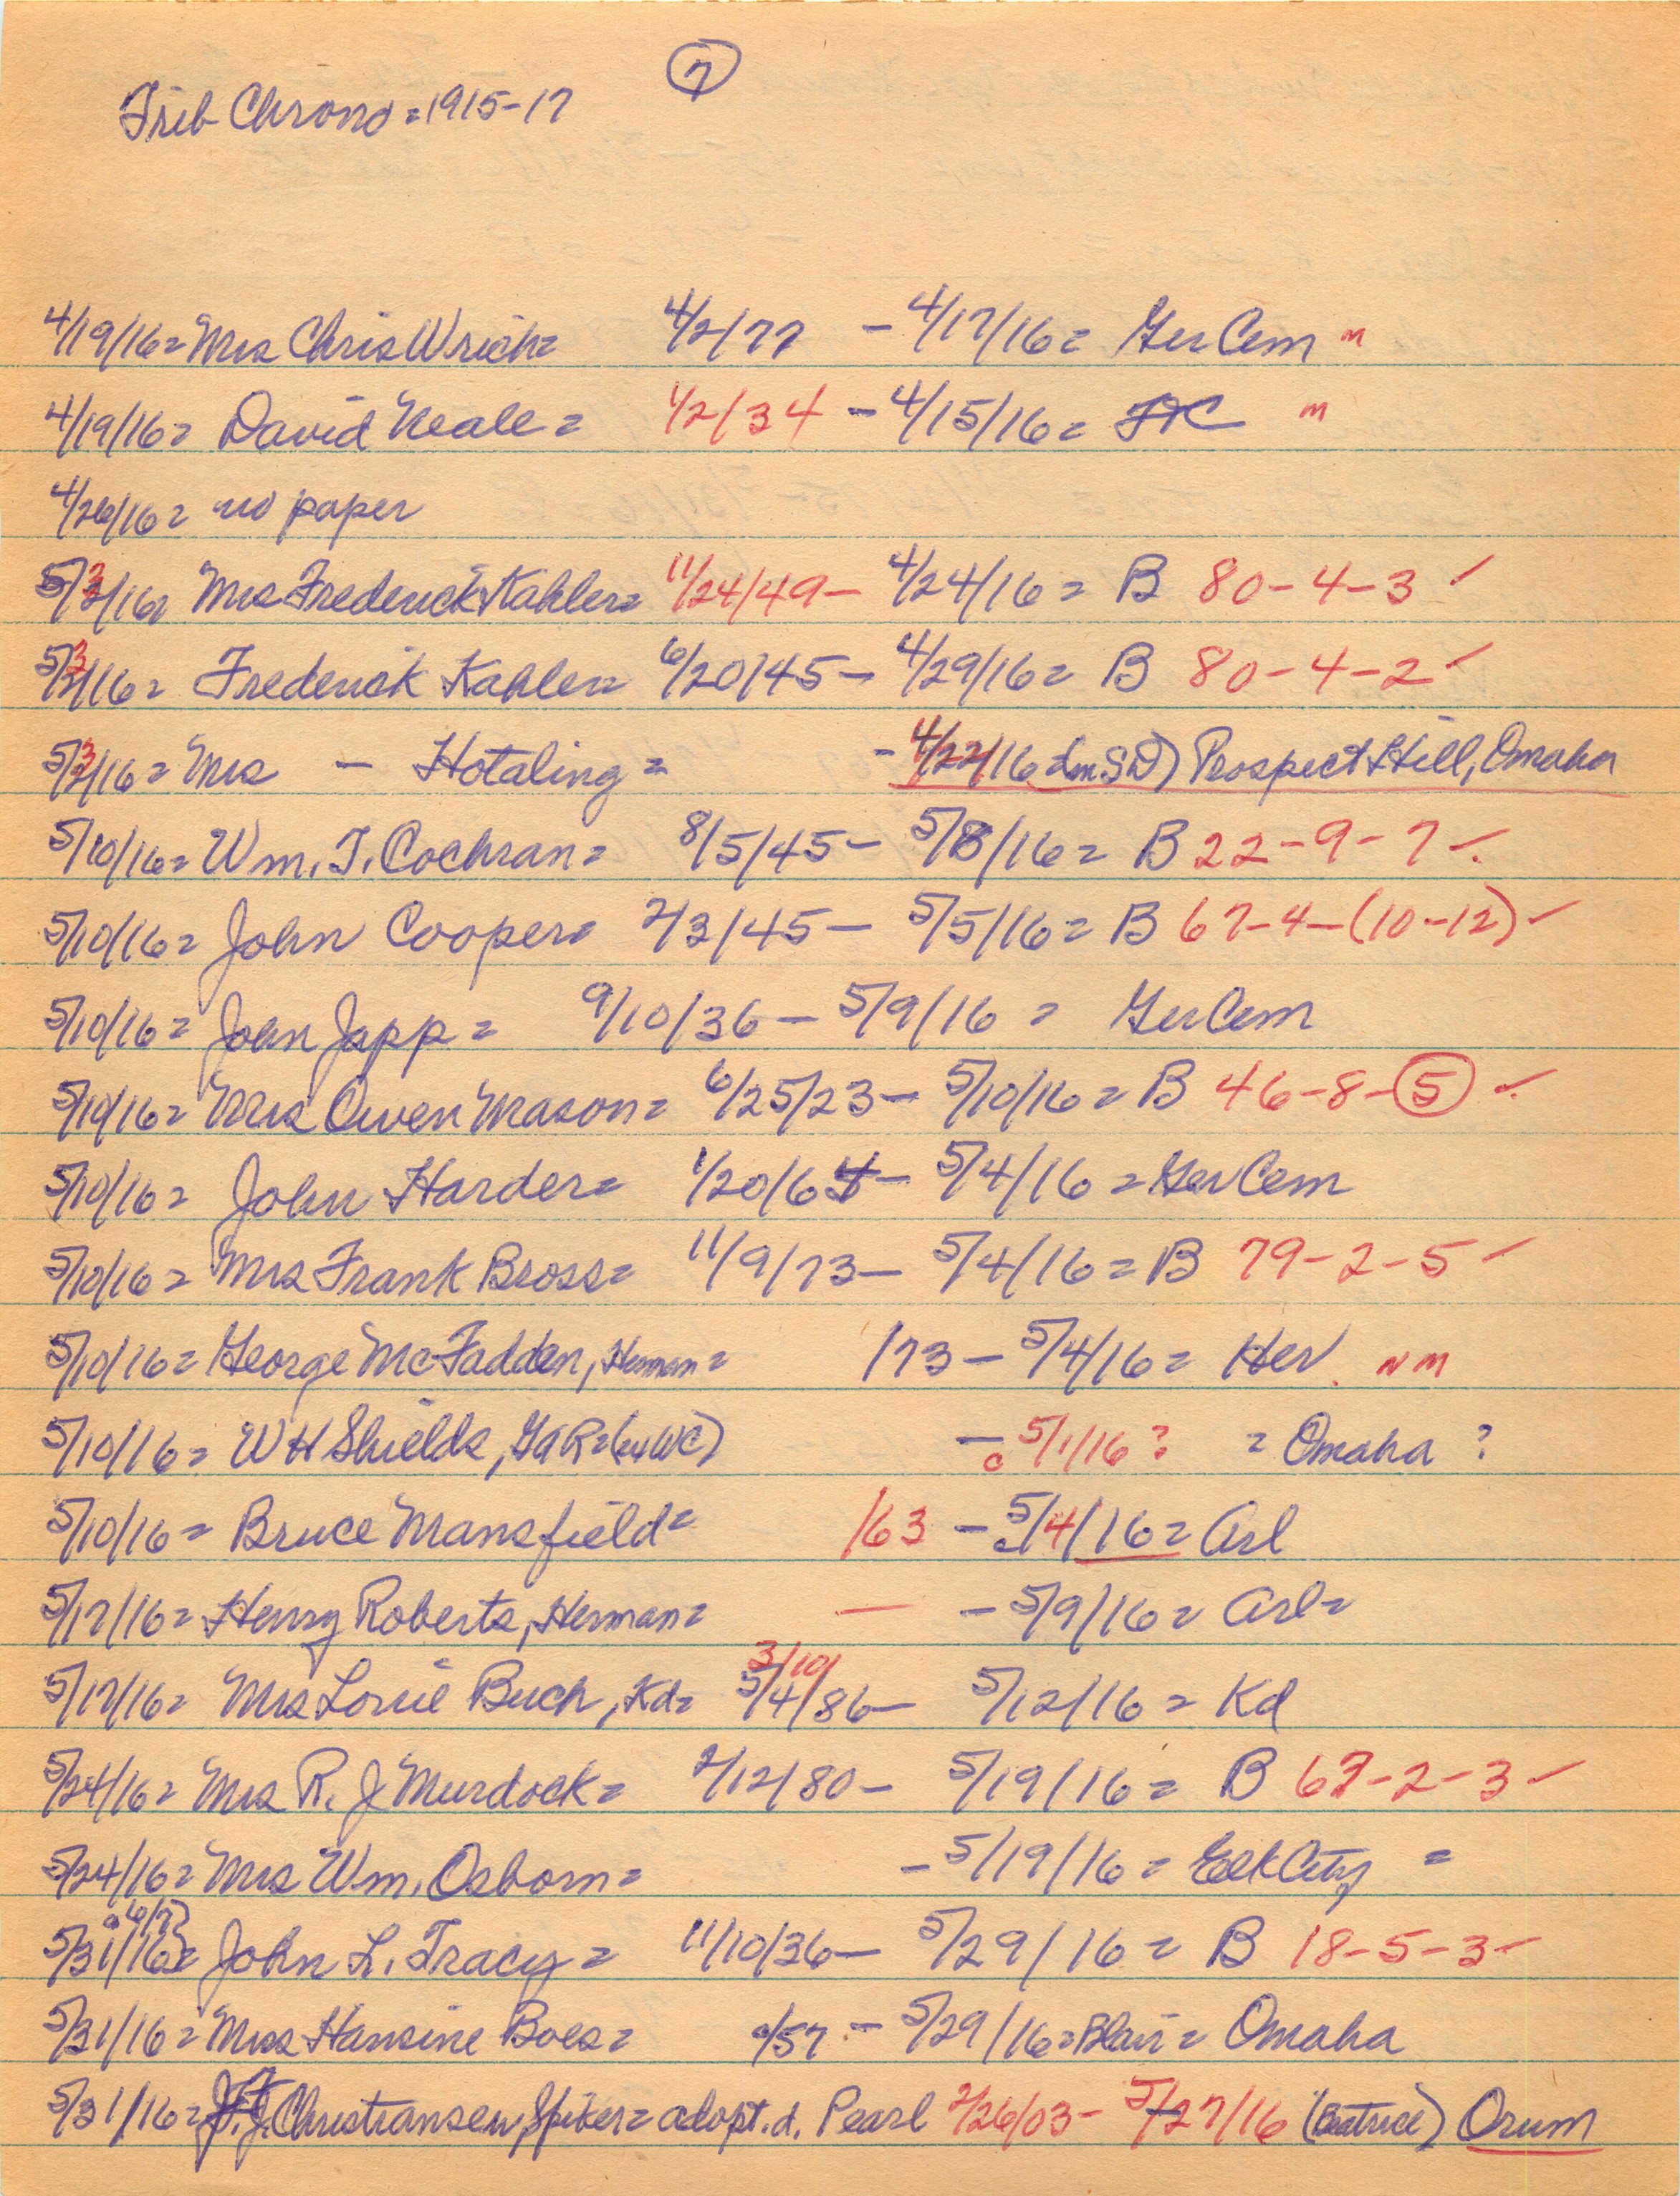 7
Trib Chrono = 1915-17
4/19/16 = Mrs Chris Wrich = 4/2/77 - 4/17/16 = Ger Cem m
4/19/16 = David Neale = 1/2/34 - 4/15/16 = m
4/26/16 = no paper
5/3/16 = Mrs Frederick Kahler = 11/24/49 - 4/24/16 = B 80-4-3 ✓
5/3/16 = Frederick Kahler = 6/20/45 - 4/29/16 = B 80-4-2 ✓
5/3/16 = Mrs - Hotaling = - 4/22/16 (in SD) Prospect Hill, Omaha
5/10/16 = Wm. T. Cochran = 8/5/45 - 5/8/16 = B 22-9-7 ✓
5/10/16 = John Cooper = 2/3/45 - 5/5/16 = B 67-4-(10-12) ✓
5/10/16 = John Japp = 9/10/36 - 5/9/16 = Ger Cem
5/10/16 = Mrs Owen Mason = 6/25/23 - 5/10/16 = B 46-8-5 ✓
5/10/16 = John Harder = 1/20/64 - 5/4/16 = Ger Cem
5/10/16 = Mrs Frank Bross = 11/9/73 - 5/4/16 = B 79-2-5 ✓
5/10/16 = George McFadden, Herman = /73 - 5/4/16 = Her. NM
5/10/16 = W H Shields, GAR = (exWC) - c 5/1/16? = Omaha ?
5/10/16 = Bruce Mansfield = /63 - 5/4/16 = Arl
5/17/16 = Henry Roberts, Herman = — - 5/9/16 = Arl =
5/17/16 = Mrs Lorie Buch, Kd = 3/10/ 5/4/86 - 5/12/16 = Kd
5/24/16 = Mrs R. J Murdock = 2/12/80 - 5/19/16 = B 63-2-3 ✓
5/24/16 = Mrs Wm. Osborn = - 5/19/16 = Elk City =
5/31/16 & 6/7} = John L. Tracy = 11/10/36 - 5/29/16 = B 18-5-3 ✓
5/31/16 = Mrs Hansine Boes = c/57 - 5/29/16 = Blair = Omaha
5/31/16 = J. J. Christiansen, Spiker = adopt. d. Pearl 2/26/03 - 5/27/16 (Beatrice) Orum